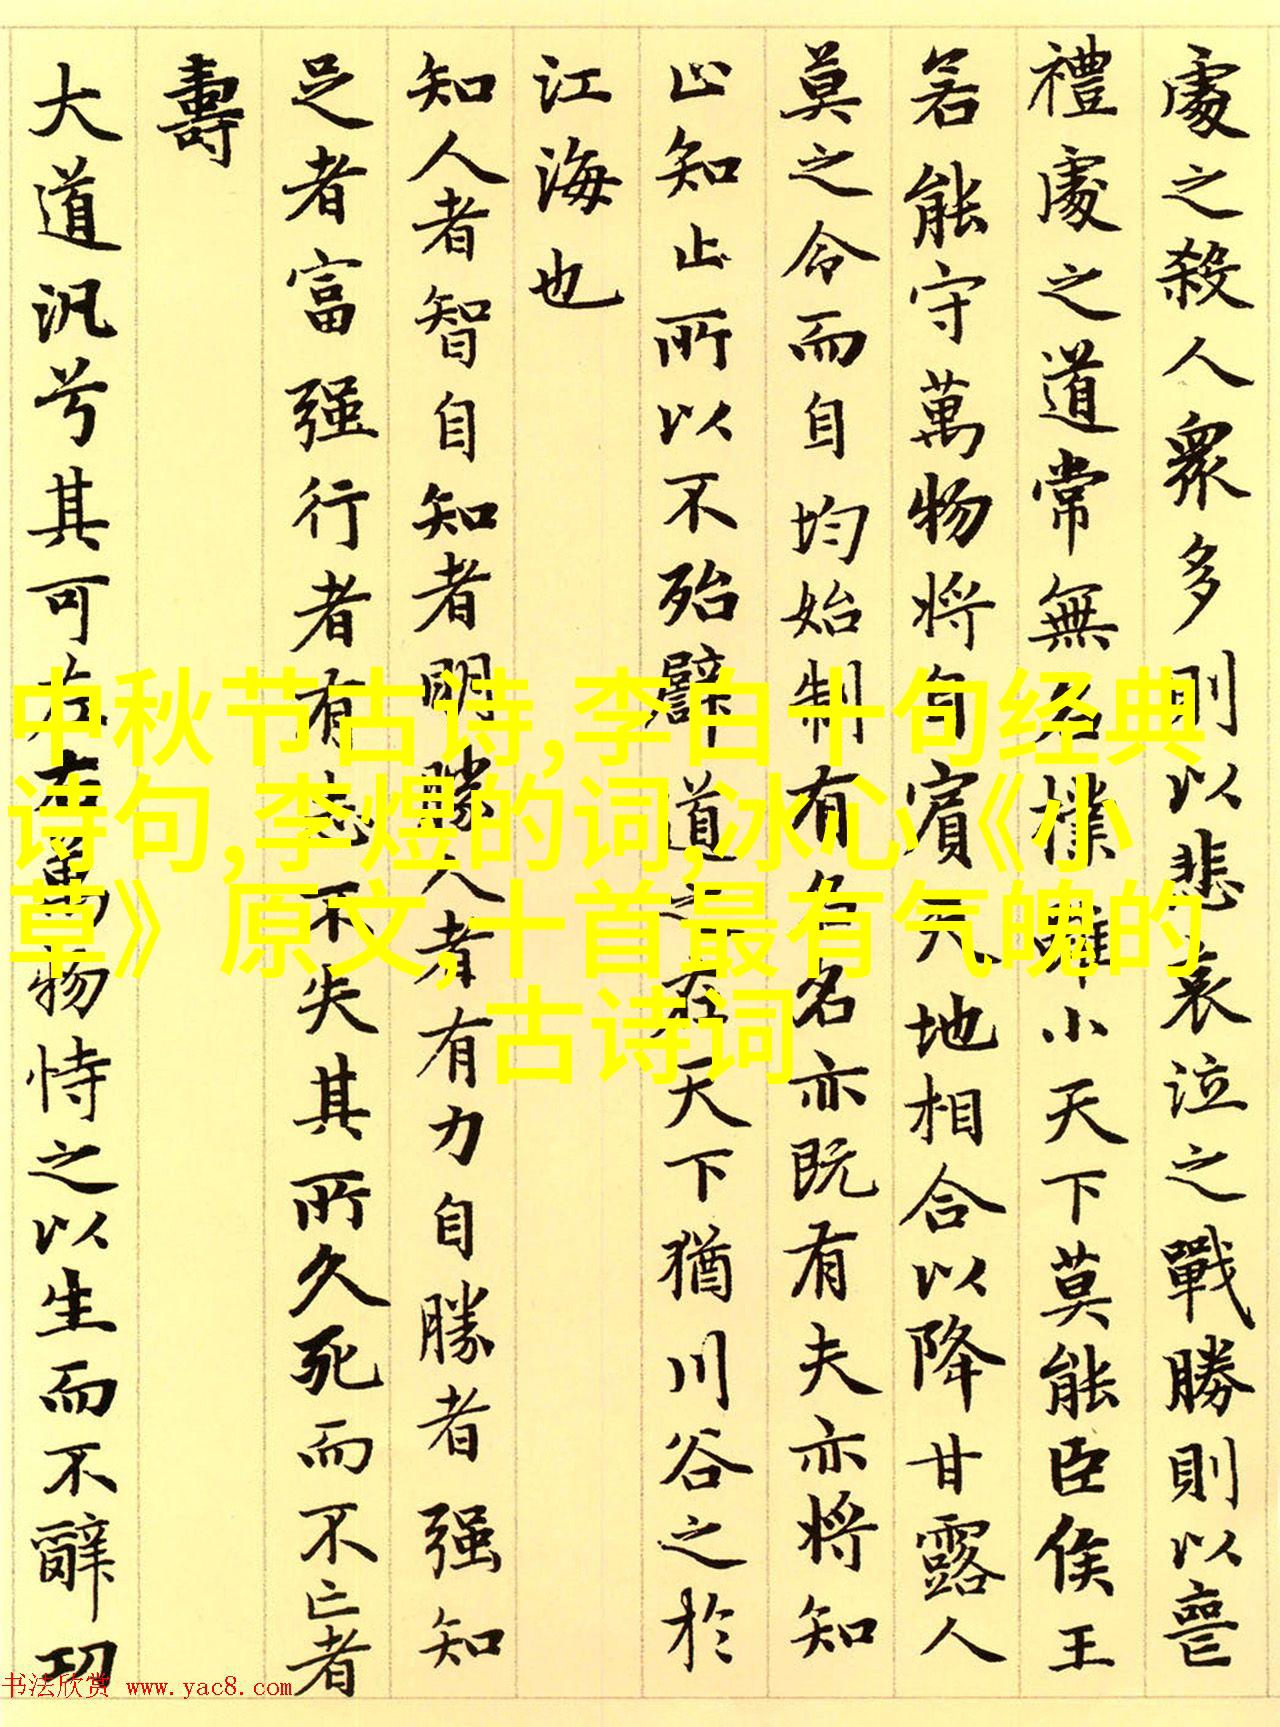 處之殺人衆多則以悲哀泣之戰勝則以喪
禮處之道常無名樸雖小天下莫能臣侯王
若能守萬物將自賓天地相合以降甘露人
莫之令而自均始制有名名亦既有夫亦將知
止知止所以不殆譬道之在天下猶川谷之於
江海也
知人者智自知者明勝人者有力自勝者强知
足者富强行者有志不失其所久死而不亡者
壽
大道汎兮其可左右萬物恃之以生而不辭功
中秋节古诗,李白十句经典
诗句,李煜的词,冰心《小
草》原文,十首最有气魄的
古诗词
书法欣赏 www.yac8.com